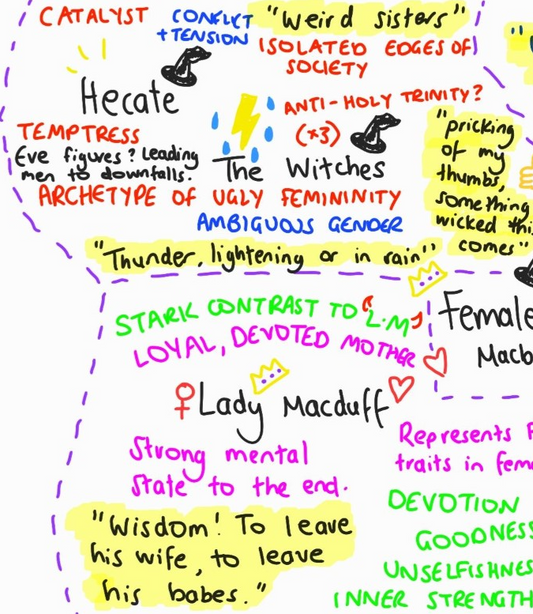 CATALYST
CONFLICT
+TENSION
"Weird sisters"
ISOLATED EDGES OF
SOCIETY
Hecate
ANTI-HOLY TRINITY?
(x3)
TEMPTRESS
Eve figures? Leading
men to downfalls.
The Witches
ARCHETYPE OF UGLY FEMININITY
AMBIGUOUS GENDER
"Thunder, lightening or in rain"
"pricking
of my
thumbs,
something
wicked this
comes"
STARK CONTRAST TO "L.M"
LOYAL, DEVOTED MOTHER
Female
Macb
Lady Macduff
Strong mental
state to the end.
"Wisdom! To leave
his wife, to leave
his babes."
Represents F
traits in fem
DEVOTION
GOODNESS
UNSELFISHNES
INNER STRENGTH